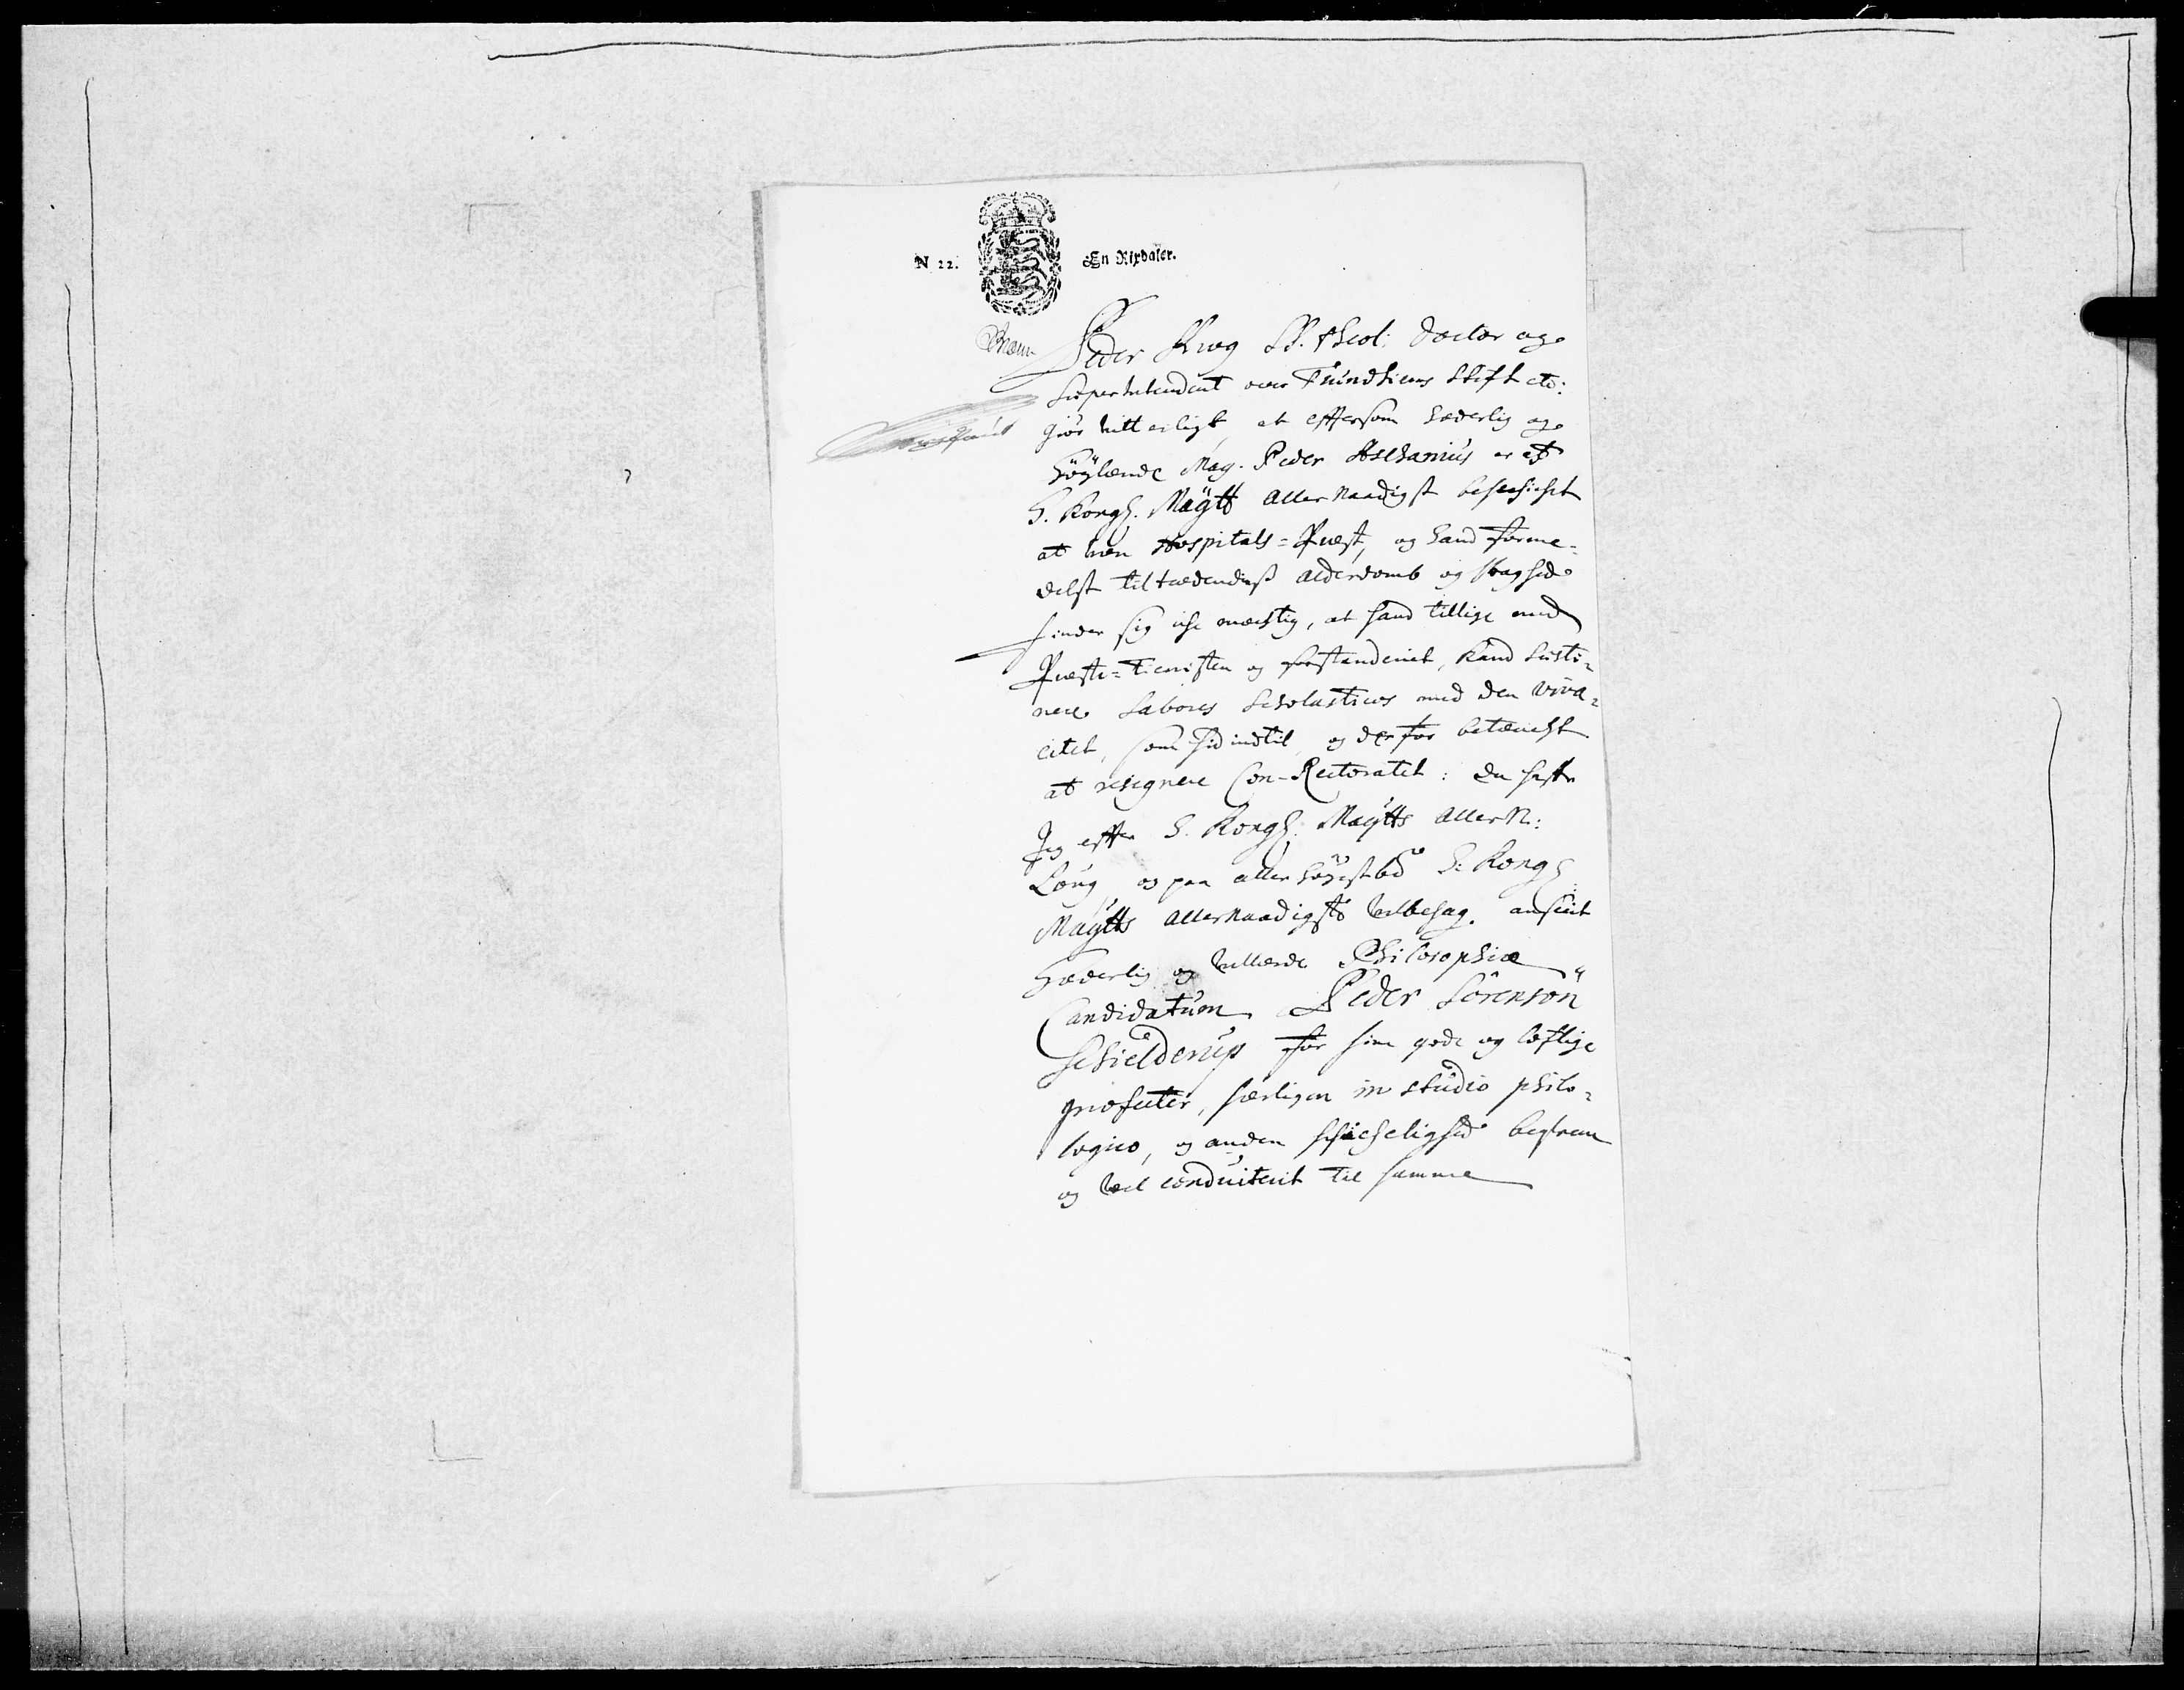 N 22. En Rixdaler.
Peder Krog SS. theol: Doctor og
Superintendent over Trundhiems Stift etc:
giør vitterligt, at effersom Hæderlig og
Høylærde Mag. Peder Aschanius er af
H. Kongl. Maÿtt allernaadigst beskicket
at være Hospitals=Præst, og hand forme=
delst tiltrædendes alderdomb og svaghed
finder sig icke mæchtig, at hand tillige med
Præste=Tienisten og forstanderiet, kand susti=
nere Labores Scholasticos med den viva=
citet, som hid indtil, og derfor betænckt
at resignere Con-Rectoratet: Da hafr
Jeg effter H. Kongl: Maÿtts Allern:
Loug og paa allerhøyestbd H. Kongl
Maÿtts allernaadigste velbehag. anseet
Hæderlig og vellærde Philosophiæ
Candidatum Peder Sörensön
Schielderup for sine gode og loflige
profecter, særligen in studio philo=
logico, og anden schickelighed beqvem
og vel conduiteret til samme